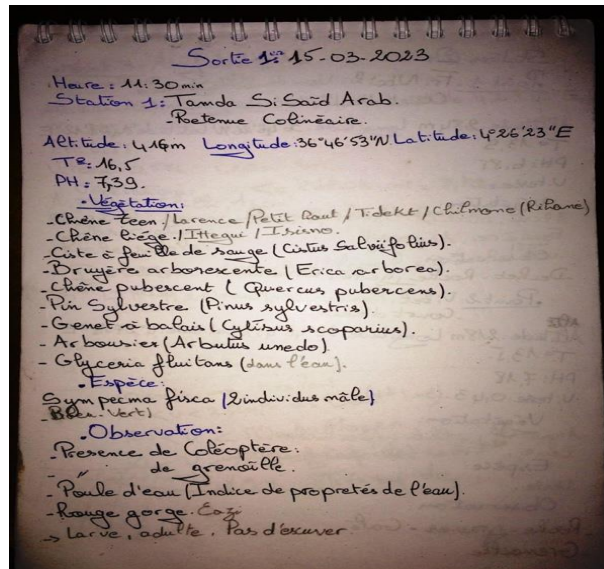 Sortie 1ère 15-03-2023
Heure : 11:30min
Station 1: Tamda Si Saïd Arab.
-Reetenue Colinéaire.
Altitude: 416m Longitude: 36°46'53"N Latitude: 4°26'23"E
T°: 16,5
PH: 7,39.
•Végétation:
-Chêne zeen / Larence / Petit Raut / Tidekt / Chilmone (Rihane)
-Chêne liège / Ittegui / Isisno.
-Ciste à feuille de sauge (Cistus Salviifolius).
-Bruyère arborescente (Erica arborea).
-Chêne pubescent (Quercus pubercens).
-Pin Sylvestre (Pinus sylvestris).
-Genet à balais (Cytisus scoparius).
-Arbousier (Arbutus unedo)
-Glyceria fluitans (dans l'eau).
•Espèce:
Sympecma fisca (2 individus mâle)
Vert)
•Observation:
-Presence de Coléoptère:
- " de grenouille.
-Poule d'eau (Indice de propretés de l'eau).
-Rouge gorge.
→ Larve, adulte. Pas d'exuver